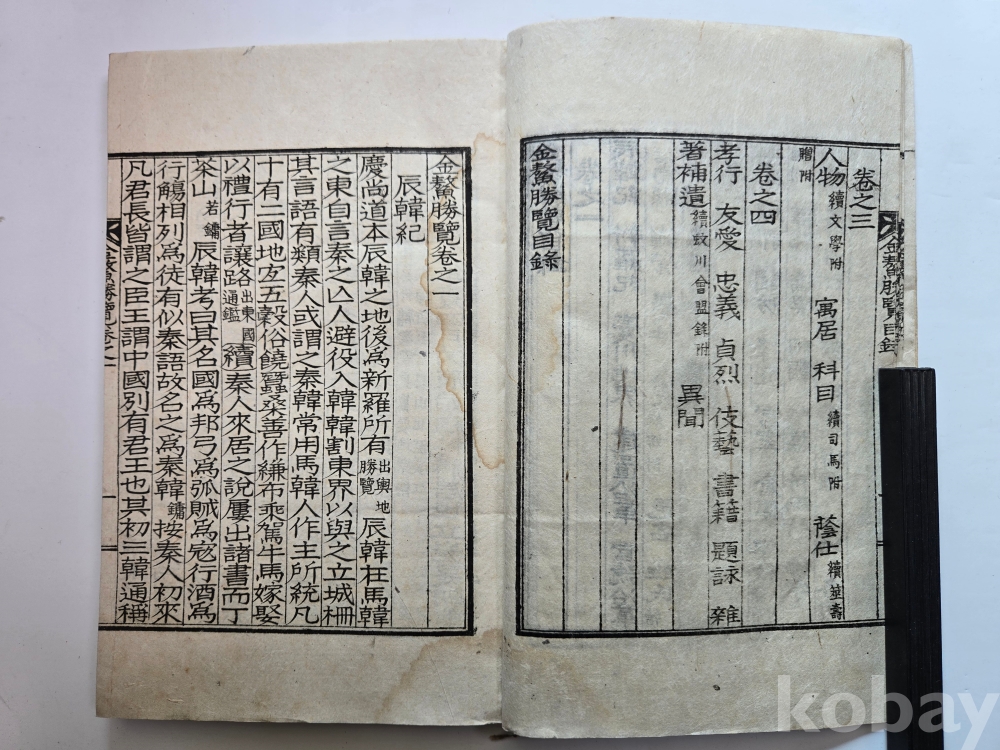 卷之三
人物 續文學附 寓居 科目 續司馬附 蔭仕 續蓝壽
贈附
卷之四
孝行 友愛 忠義 貞烈 伎藝 書籍 題詠 雜
著補遺 續蚊川會盟錄附 異聞
金鰲勝覽目錄
金鰲勝覽目錄
金鰲勝覽卷之一
辰韓紀
慶尚道本辰韓之地後爲新羅所有 出輿地勝覽 辰韓在馬韓
之東自言秦之亾人避役入韓韓割東界以與之立城柵
其言語有類秦人或謂之秦韓常用馬韓人作主所統凡
十有二國地宜五穀俗饒蠶桑善作縑布乘駕牛馬嫁娶
以禮行者讓路 出東國通鑑 續秦人來居之說屢出諸書而丁
茶山 若鏞 辰韓考曰其名國爲邦弓爲弧賊爲寇行酒爲
行觴相列爲徒有似秦語故名之爲秦韓 鏞 按秦人初來
凡君長皆謂之臣王謂中國別有君王也其初三韓通稱
金鰲勝覽卷之一
kobay